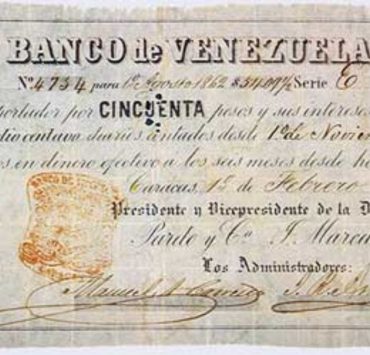 BANCO de VENEZUELA
No. 4734 para 1o Agosto 1862 $ Serie E
portador por CINCUENTA pesos y sus interese
dio centavo diarios contados desde 1o de Novien
os en dinero efectivo a los seis meses desde
Caracas 15 de Febrero
Presidente y Vicepresidente de la D
Pardo y Ca J. Marcu
Los Administradores:
Manuel A.